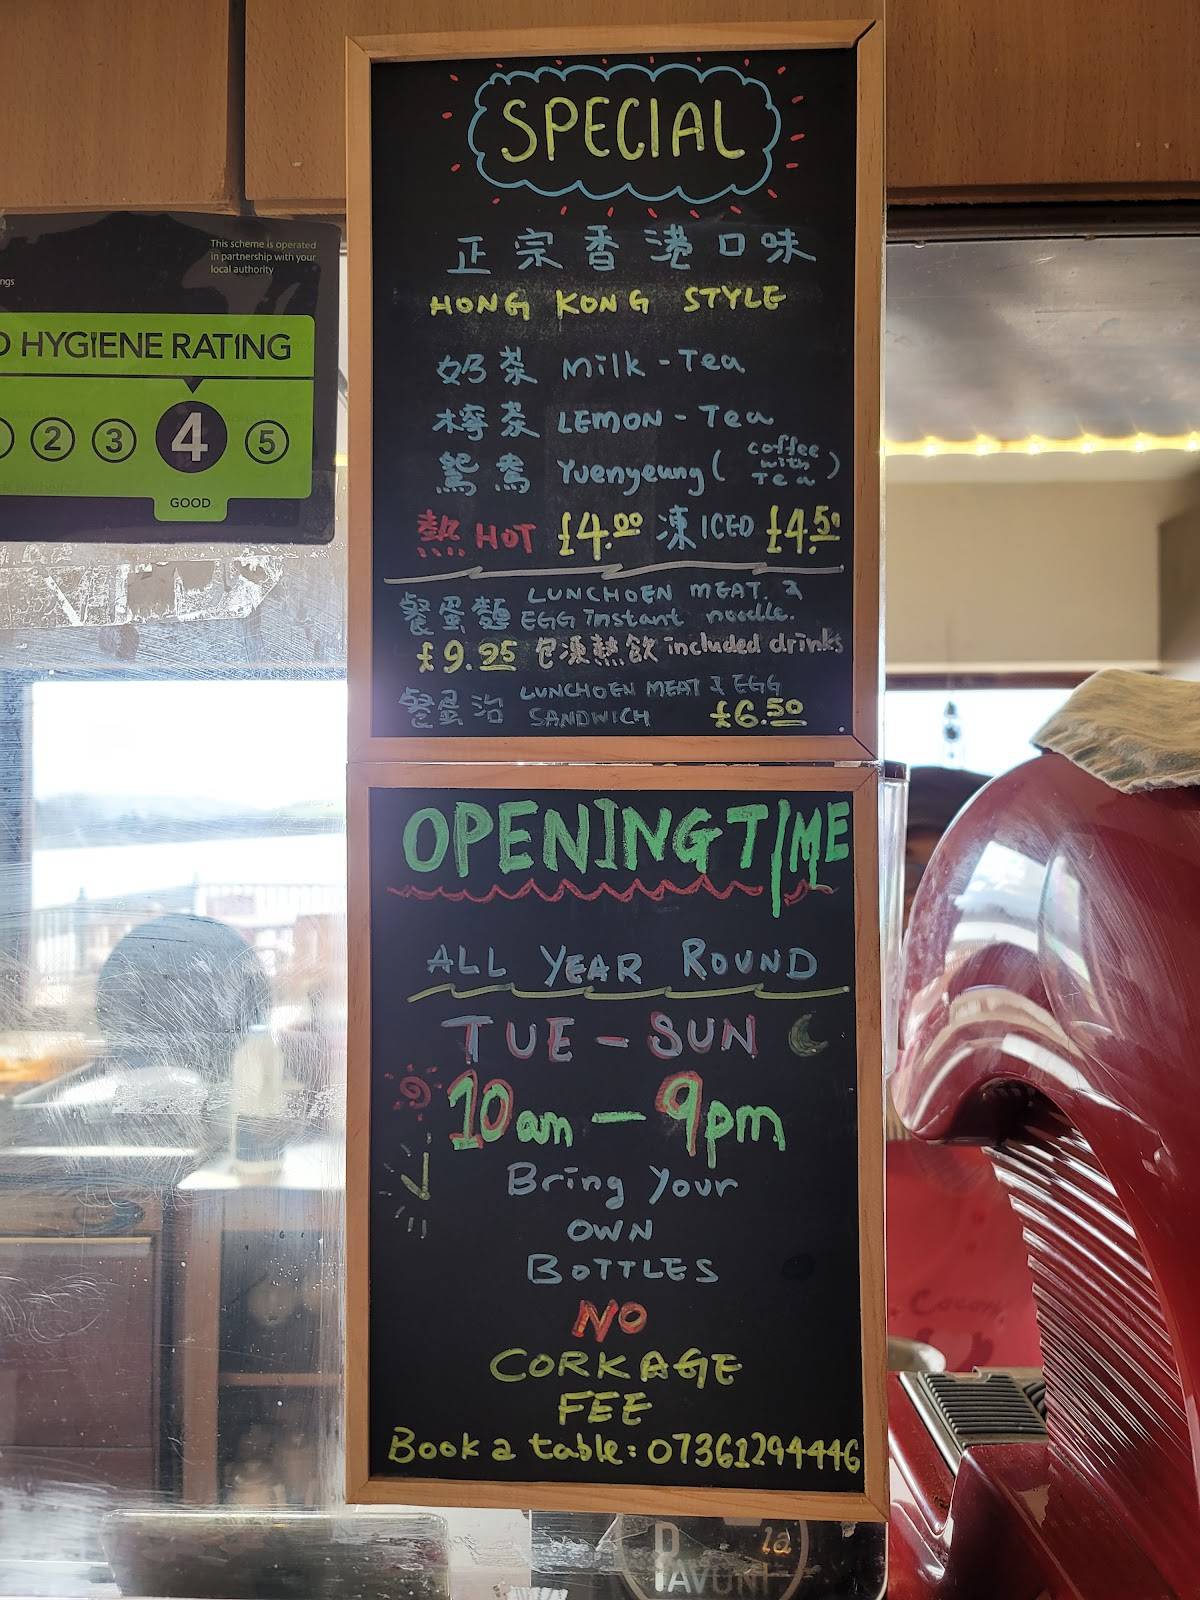 This scheme is operated
in partnership with your
local authority
ngs
HYGIENE RATING
2 3 4 5
GOOD
SPECIAL
正宗香港口味
HONG KONG STYLE
奶茶 Milk-Tea
檸茶 LEMON-Tea
鴛鴦 Yuenyeung (coffee with Tea)
熱 HOT £4.00 凍 ICED £4.50
餐蛋麵 LUNCHOEN MEAT &
EGG instant noodle.
£9.95 包凍熱飲 included drinks
餐蛋治 LUNCHOEN MEAT & EGG
SANDWICH £6.50
OPENING TIME
ALL YEAR ROUND
TUE - SUN
10am - 9pm
Bring Your
OWN
BOTTLES
NO
CORKAGE
FEE
Book a table: 07361294446
la
PAVONI